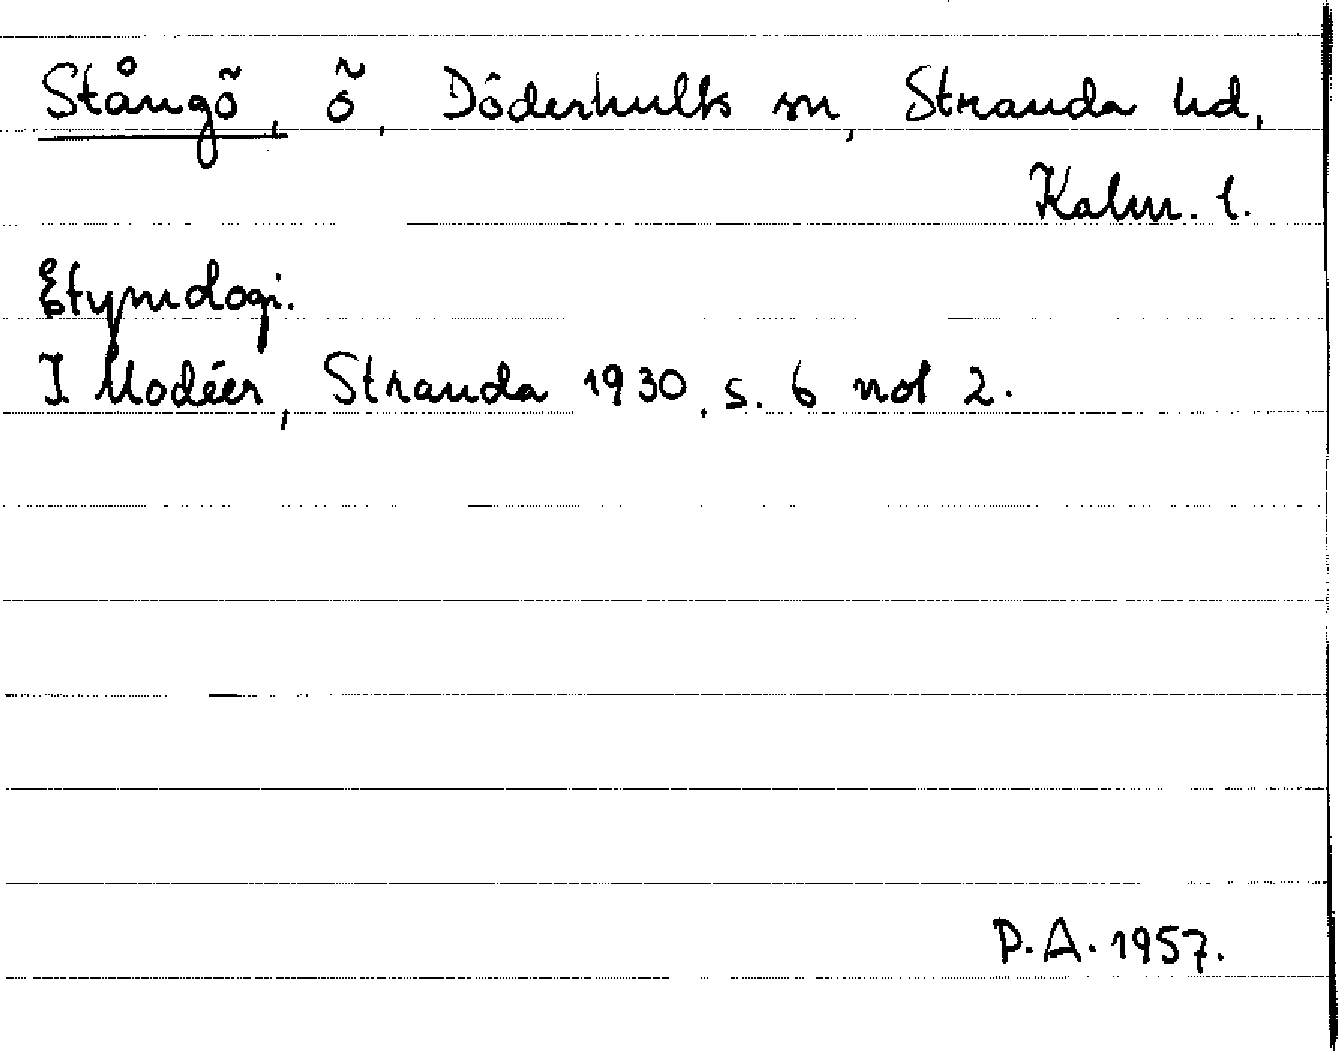 Stångö, ö, Döderhults sn, Stranda hd,
Kalm. l.
Etymologi.
I. Modéer, Stranda 1930, s. 6 not 2.
P.A. 1957.